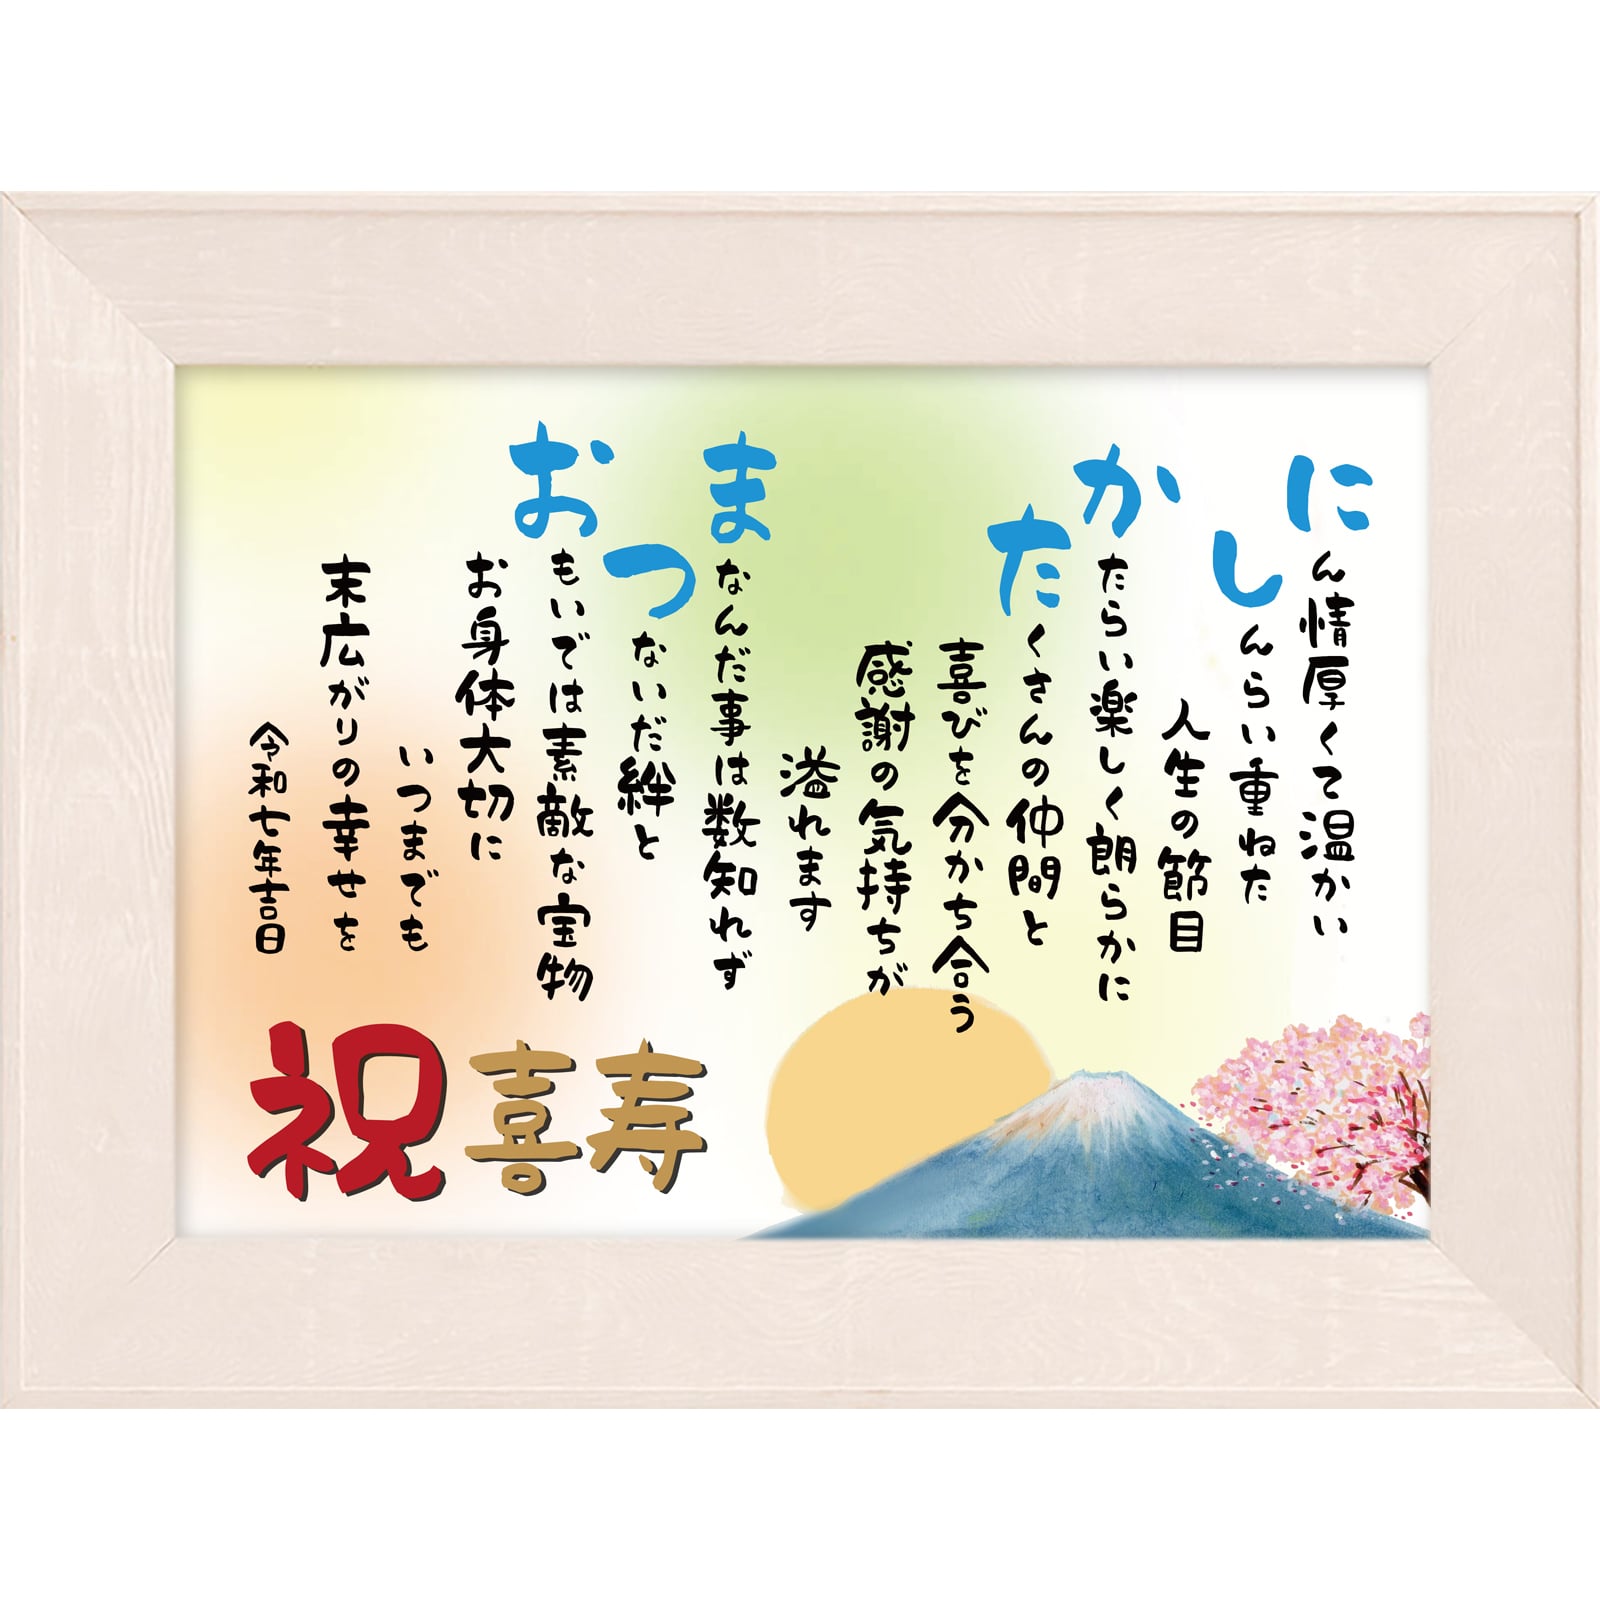 にん情厚くて温かい
しんらい重ねた
人生の節目
かたらい楽しく朗らかに
たくさんの仲間と
喜びを分かち合う
感謝の気持ちが
溢れます
まなんだ事は数知れず
つないだ絆と
おもいでは素敵な宝物
お身体大切に
いつまでも
末広がりの幸せを
令和七年吉日
祝喜寿